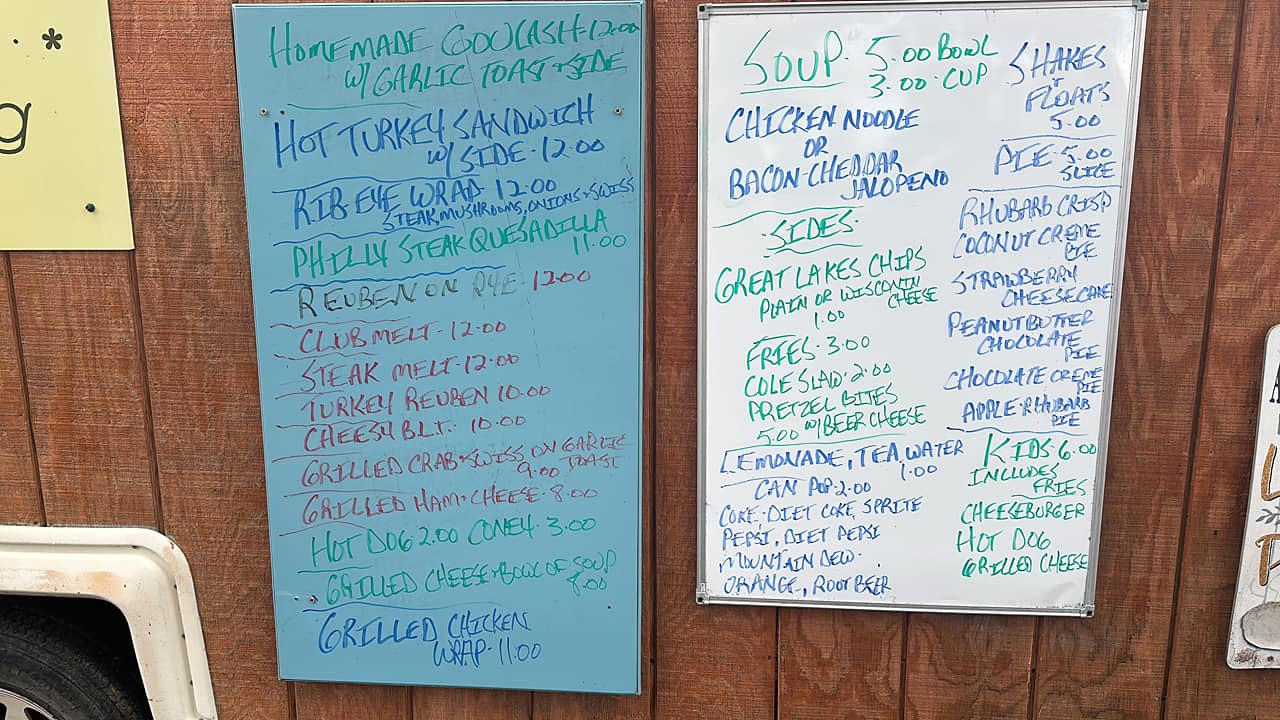 g
HOMEMADE GOULASH-12.00
W/ GARLIC TOAST & SIDE
HOT TURKEY SANDWICH
W/ SIDE-12.00
RIB EYE WRAP 12.00
STEAK, MUSHROOMS, ONIONS & SWISS
PHILLY STEAK QUESADILLA
11.00
REUBEN ON RYE 12.00
CLUB MELT-12.00
STEAK MELT-12.00
TURKEY REUBEN 10.00
CHEESY BLT. 10.00
GRILLED CRAB & SWISS ON GARLIC
9.00 TOAST
GRILLED HAM & CHEESE-8.00
HOT DOG 2.00 CONEY-3.00
GRILLED CHEESE & BOWL OF SOUP
8.00
GRILLED CHICKEN
WRAP-11.00
SOUP. 5.00 BOWL
3.00-CUP
CHICKEN NOODLE
OR
BACON-CHEDDAR
JALOPENO
SIDES.
GREAT LAKES CHIPS
PLAIN OR WISCONIN
CHEESE
1.00
FRIES-3.00
COLE SLAW-2.00
PRETZEL BITES
5.00 W/ BEER CHEESE
LEMONADE, TEA, WATER
1.00
CAN POP 2.00
COKE-DIET COKE, SPRITE
PEPSI, DIET PEPSI
MOUNTAIN DEW.
ORANGE, ROOT BEER
SHAKES
&
FLOATS
5.00
PIE-5.00
SLICE
RHUBARB CRISP
COCONUT CREME
PIE
STRAWBERRY
CHEESECAKE
PEANUTBUTTER
CHOCOLATE
PIE
CHOCOLATE CREME
PIE
APPLE-RHUBARB
PIE
KIDS-6.00
INCLUDES
FRIES
CHEESEBURGER
HOT DOG
GRILLED CHEESE